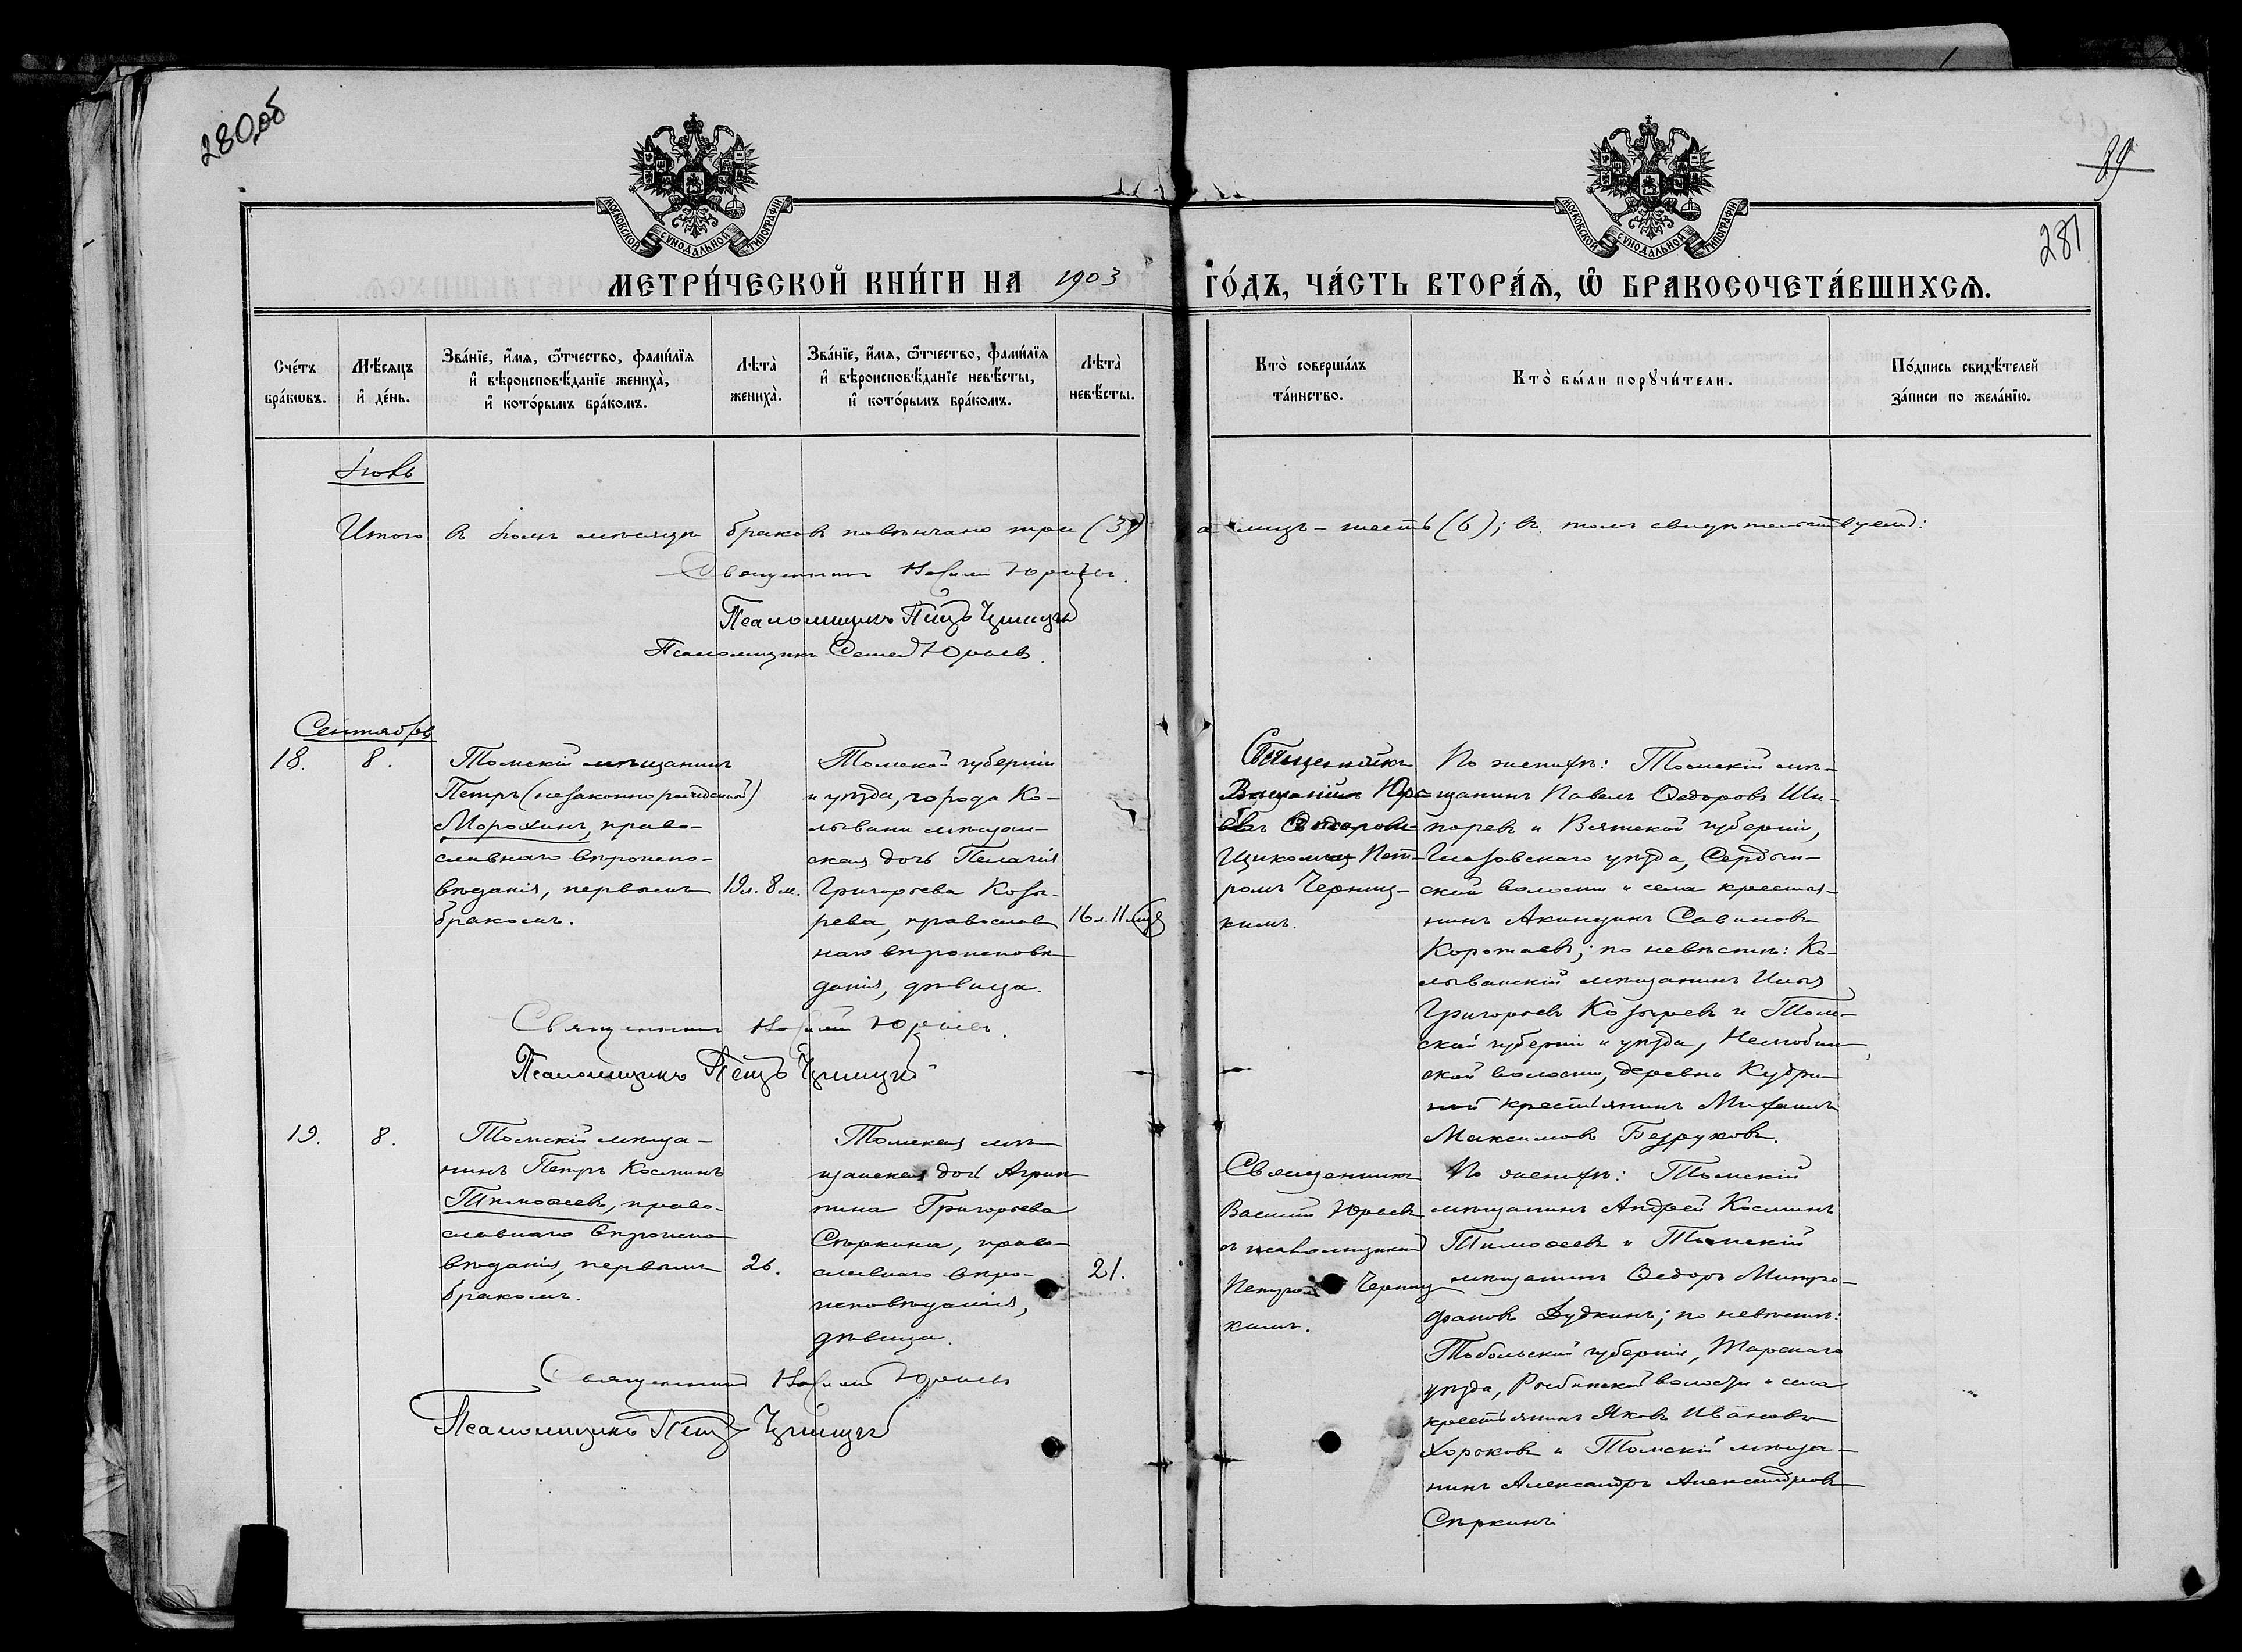 280об
89
281
МОСКОВСКОЙ СѴНОДАЛЬНОЙ ТИПОГРАФІИ
МОСКОВСКОЙ СѴНОДАЛЬНОЙ ТИПОГРАФІИ
МЕТРИ́ЧЕСКОЙ КНИ́ГИ НА 1903 ГО́ДЪ, ЧА́СТЬ ВТОРА́Ѧ, Ѿ БРАКОСОЧЕТА́ВШИХСѦ.
Сче́тъ бра́кѡвъ.
Мѣ́сяцъ и҆ де́нь.
Зва́нїе, и҆́мѧ, ѻ҆́тчество, фами́лїѧ
и҆ вѣроисповѣ́данїе жениха̀,
и҆ кото́рымъ бра́комъ.
Лѣта̀ жениха̀.
Зва́нїе, и҆́мѧ, ѻ҆́тчество, фами́лїѧ
и҆ вѣроисповѣ́данїе невѣ́сты,
и҆ кото́рымъ бра́комъ.
Лѣта̀ невѣ́сты.
Кто̀ соверша́лъ та́инство.
Кто̀ бы́ли порꙋчи́тели.
По́дпись свидѣ́телей
за́писи по жела́нїю.
Итого въ месяцѣ браковъ повѣнчано три (3) а лицъ – шесть (6); въ томъ свидѣтельствуемъ:
Священникъ Юрьевъ.
Псаломщикъ Петръ
Псаломщикъ Юрьевъ.
Сентябрь
18.
8.
Томскій мѣщанинъ
Петръ (незаконнорожденный)
Морохинъ, право-
славнаго вѣроиспо-
вѣданія, первымъ
бракомъ.
19 л. 8 м.
Томской губерніи
и уѣзда, города Ко-
лывани мѣщан-
ская дочь Пелагія
Григорьева Козы-
рева, православ
наго вѣроисповѣ
данія, дѣвица.
16 л. 11 мѣс
Священникъ
Василій Юрь-
евъ съ псалом-
щикомъ Пет-
ромъ Черниц-
кимъ.
По женихѣ: Томскій мѣ-
щанинъ Павелъ Ѳедоровъ Ши-
и Вятской губерніи,
Глазовскаго уѣзда,
ской волости и села крестья-
нинъ Акиндинъ Савиновъ
Коротаевъ; по невѣстѣ: Ко-
лыванскій мѣщанинъ Илья
Григорьевъ Козыревъ и Том-
ской губерніи и уѣзда, Нелюбин
ской волости, деревни Кудри-
ной крестьянинъ Михаилъ
Максимовъ Безруковъ.
Священникъ Юрьевъ.
Псаломщикъ Петръ
19.
8.
Томскій мѣща-
нинъ Петръ Косминъ
Тимоѳеевъ, право-
славнаго вѣроиспо
вѣданія, первымъ
бракомъ.
26.
Томская мѣ
щанская дочь Агрип
пина Григорьева
Сѣркина, право
славнаго вѣро-
исповѣданія,
дѣвица.
21.
Священникъ
Василій Юрьевъ
съ псаломщикомъ
Петромъ Черниц
кимъ.
По женихѣ: Томскій
мѣщанинъ Андрей Косминъ
Тимоѳеевъ и Томскій
мѣщанинъ Ѳедоръ Митро-
фановъ Дудкинъ; по невѣстѣ:
Тобольской губерніи, Тарскаго
уѣзда, Рыбинской волости и села
крестьянинъ Яковъ Ивановъ
Хороковъ и Томскій мѣща-
нинъ Александръ Александровъ
Сѣркинъ
Священникъ Юрьевъ
Псаломщикъ Петръ